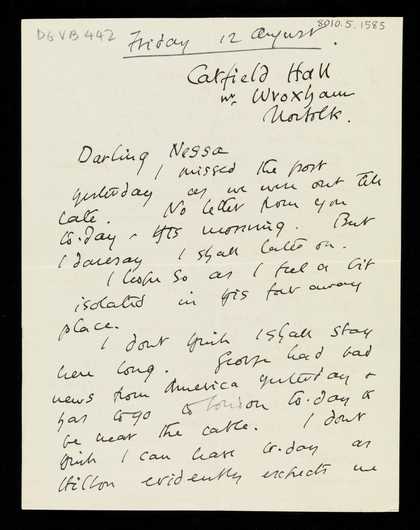 DGVB 442
8010.5.1585
Friday 12 August.
Catfield Hall
nr. Wroxham
Norfolk.
Darling Nessa
I missed the post
yesterday as we were out till
late. No letter from you
to-day - this morning. But
I daresay I shall later on.
I hope so as I feel a bit
isolated in this far away
place.
I dont think I shall stay
here long. George had bad
news from America yesterday &
has to go to London to-day to
be near the cable. I dont
think I can leave to-day as
Hilton evidently expects me